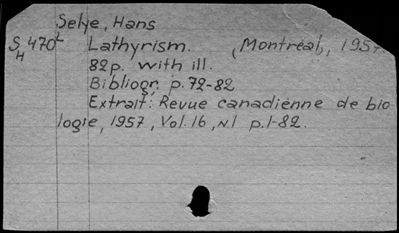 Selye, Hans
S/H 470L Lathyrism. (Montréal), 1957.
82p. with ill.
Bibliogr. p.72-82
Extrait: Revue canadienne de bio
logie, 1957, Vol. 16, N1 p.1-82.